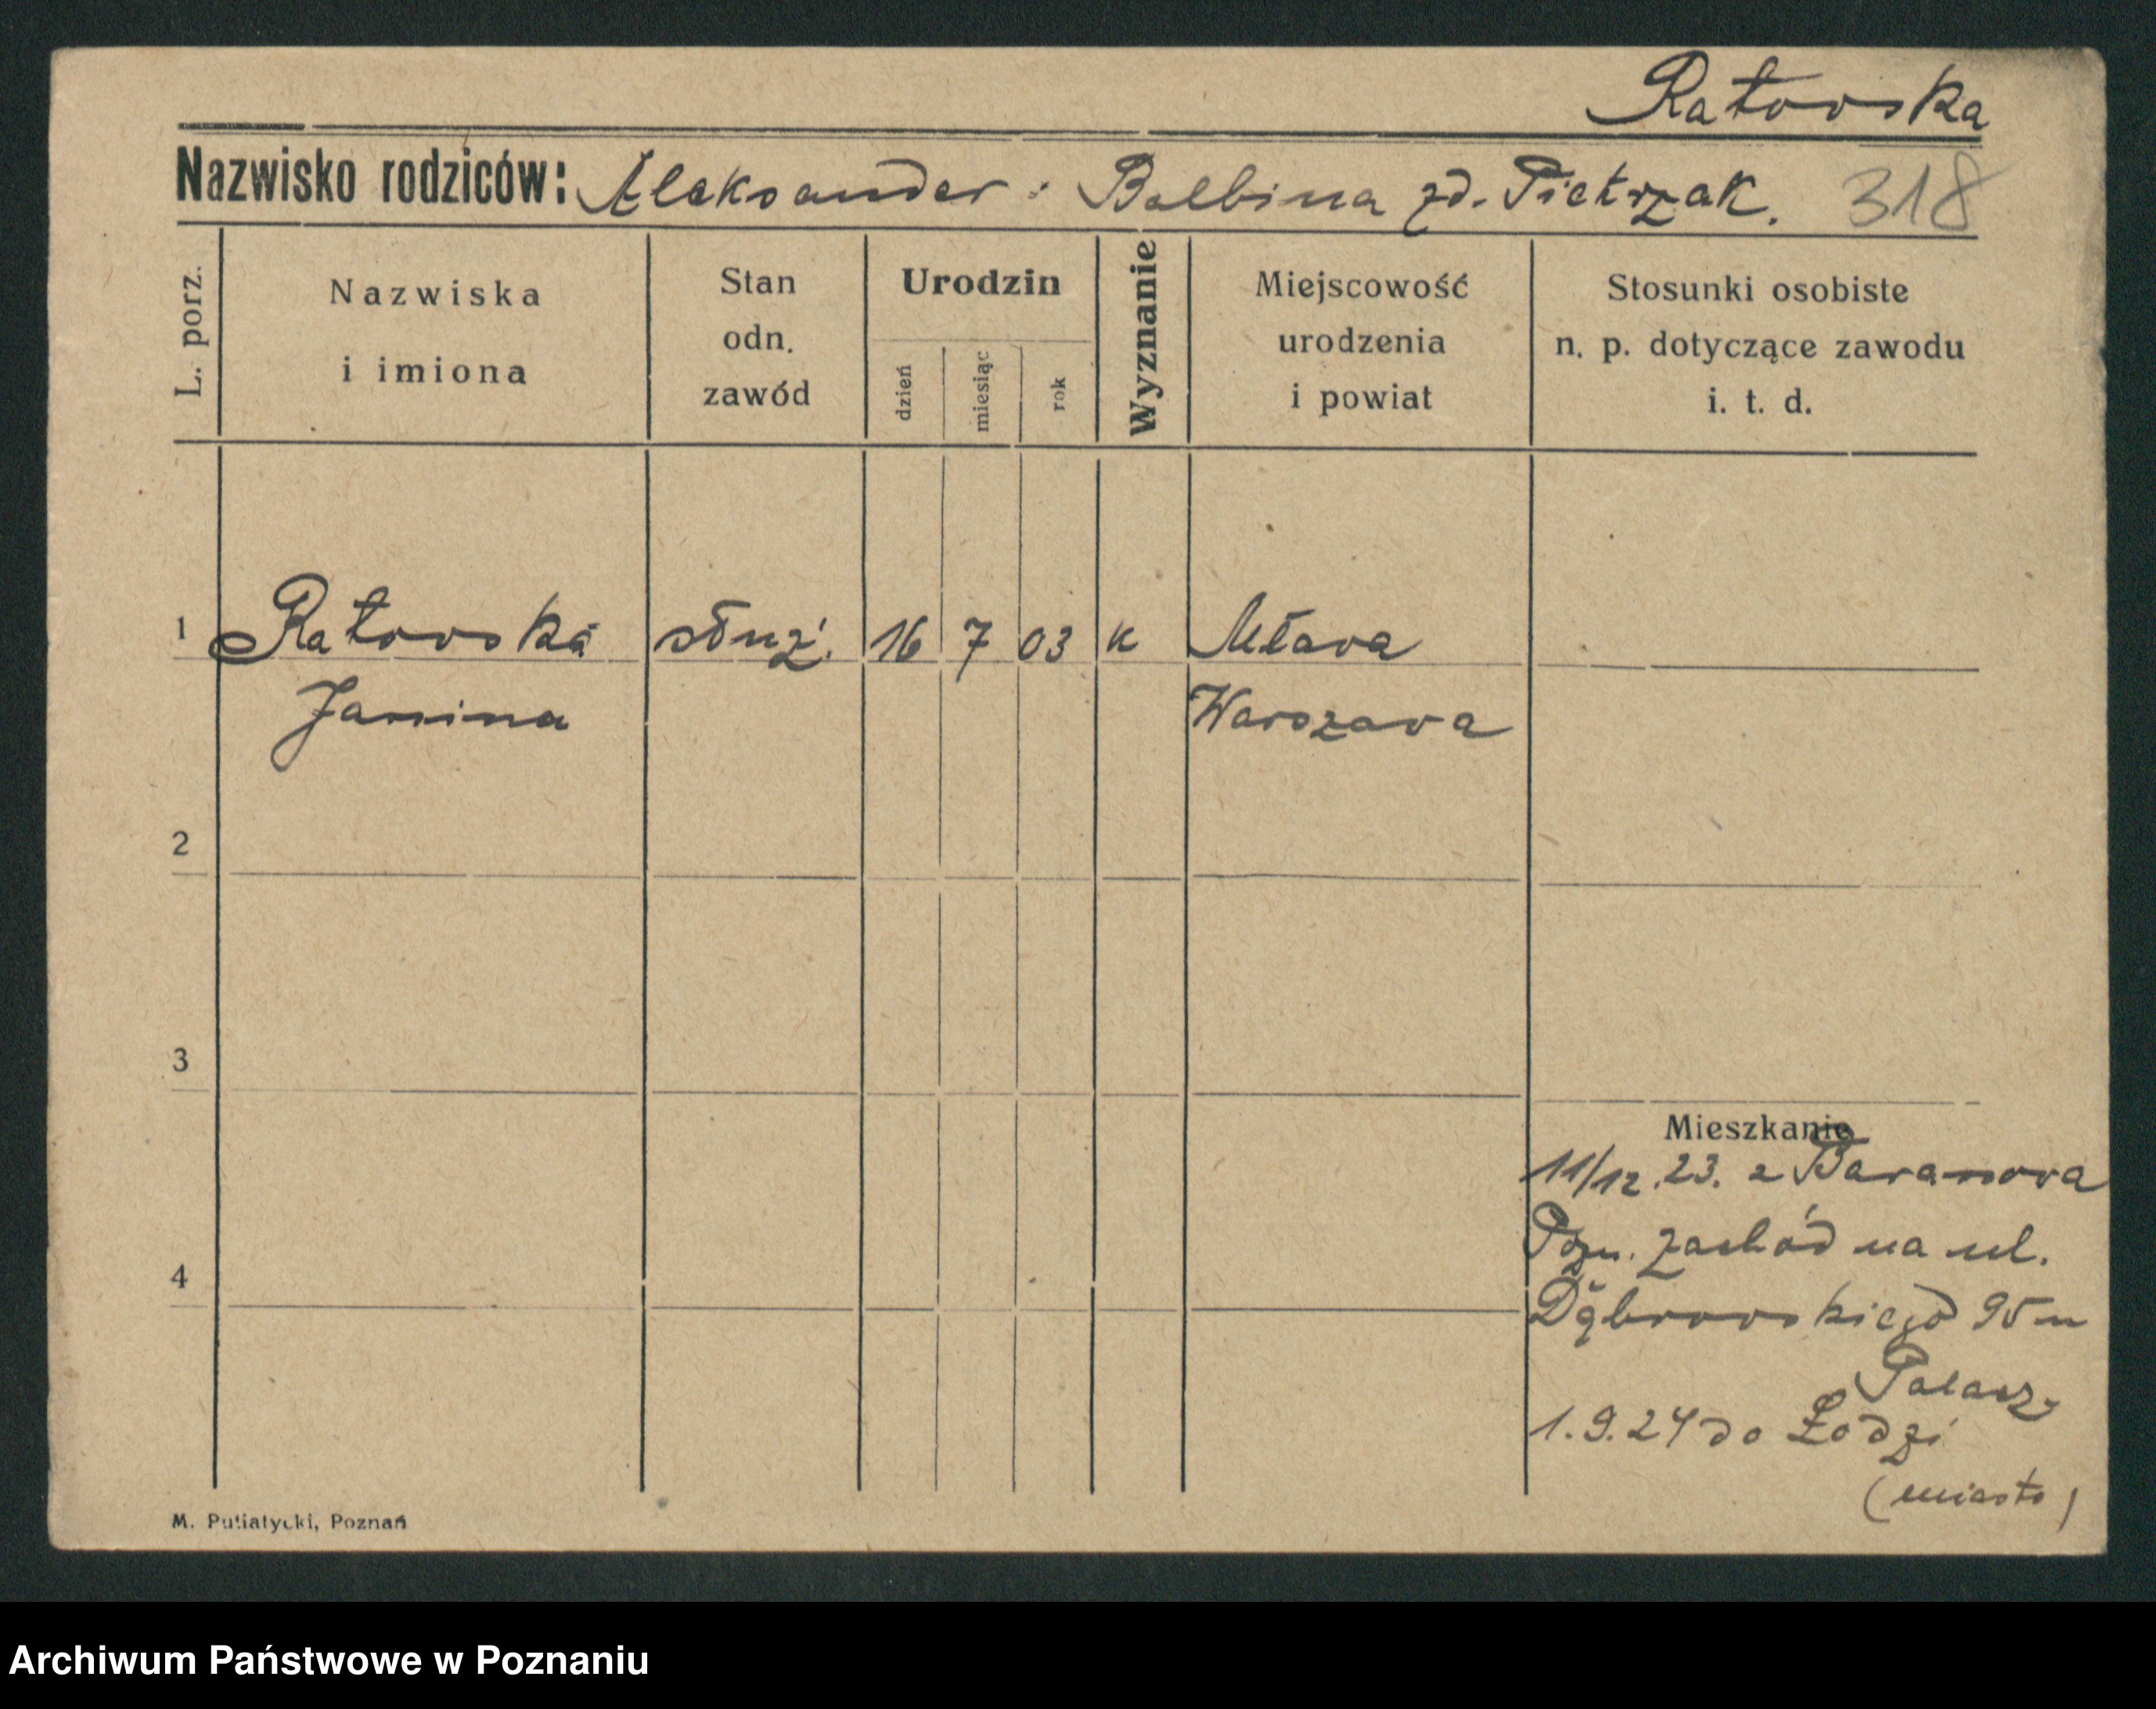 Ratowska
Nazwisko rodziców: Aleksander i Balbina zd. Pietrzak. 318
L. porz.
Nazwiska
i imiona
Stan
odn.
zawód
Urodzin
dzień
miesiąc
rok
Wyznanie
Miejscowość
urodzenia
i powiat
Stosunki osobiste
n. p. dotyczące zawodu
i. t. d.
1 Ratowska służ. 16 7 03 k Mława
Janina Warszawa
2
3
4
Mieszkanie
11/12.23. z Baranowa
Pozn. zachód na ul.
Dąbrowskiego 95 u
Palacz
1.9.24 do Łodzi
(miasto)
M. Putiatycki, Poznań
Archiwum Państwowe w Poznaniu